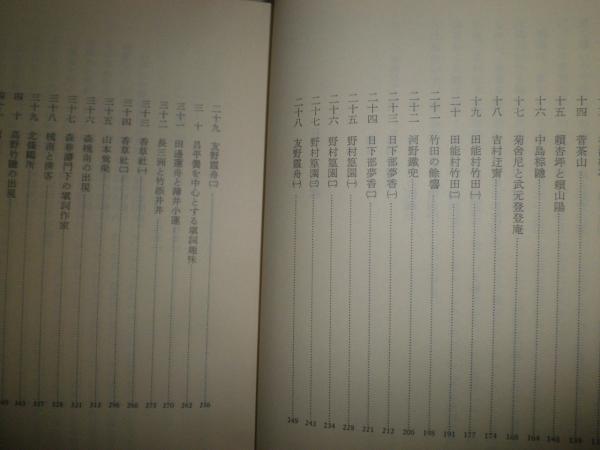 十四 菅茶山 139
十五 頼杏坪と頼山陽 144
十六 中島棕隱 148
十七 菊舍尼と武元登登庵 168
十八 吉村迂齋 174
十九 田能村竹田㈠ 177
二十 田能村竹田㈡ 191
二十一 竹田の餘響 198
二十二 河野鐵兜 206
二十三 日下部夢香㈠ 212
二十四 日下部夢香㈡ 221
二十五 野村篁園㈠ 228
二十六 野村篁園㈡ 234
二十七 野村篁園㈢ 243
二十八 友野霞舟㈠ 249
二十九 友野霞舟㈡ 256
三十 昌平黌を中心とする塡詞趣味 262
三十一 田邊蓮舟と薄井小蓮 270
三十二 長三洲と竹添井井 275
三十三 香草社㈠
三十四 香草社㈡
三十五 山本鴛梁
三十六 森槐南の出現 313
三十七 森春濤門下の塡詞作家 321
三十八 槐南と清客 328
三十九 北條鷗所 337
四十 高野竹隱の出現 343